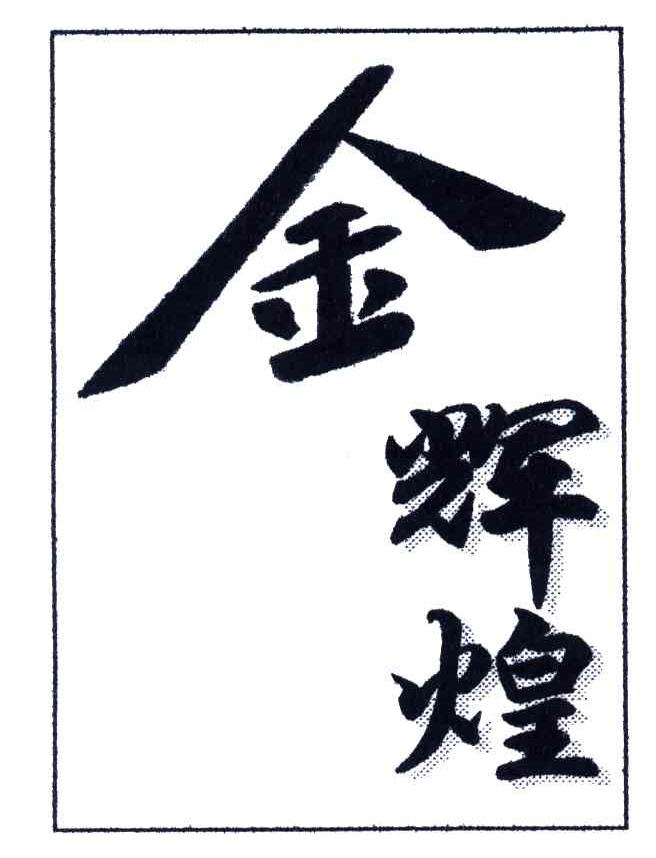 金
辉
煌